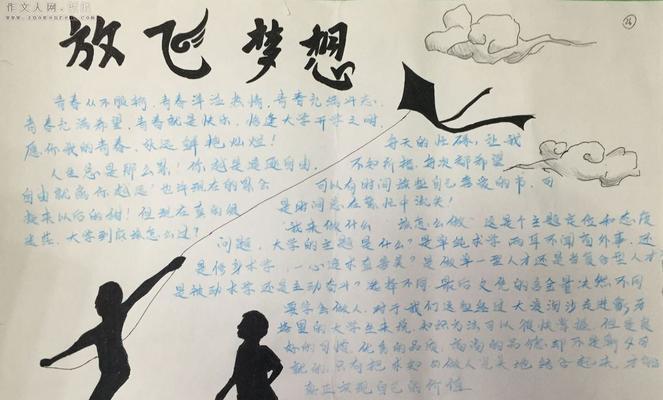 作文人网
www.zuowenren.com
26
放飞梦想
青春从不服输，青春洋溢热情，青春充满斗志，
青春充满希望，青春就是快乐，恰逢大学开学之时，
愿你我的青春，永远鲜艳灿烂！
人生总是那么累！你越是追逐自由，
自由就离你越远！也许现在的
换来以后的甜！但现在真的很
迷茫，大学到底该怎么过？
每天的忙碌，让我
不知所措，每次都希望
可以有时间放松自己喜爱的书，可
是时间总在繁忙中流失！
我来做什么 该怎么做 这是个主题定位和态度
问题，大学的主题是什么？是单纯求学，两耳不闻窗外事，还
是修身求学，一心追求真善美？是做单一型人才还是当复合型人才
是被动求学还是主动奋斗？选择不同，最后文凭的含金量决然不同
要学会做人，对于我们这些经过大浪淘沙走进
格里的大学生来说，知识方法可以很快掌握，但是良
好的习惯，优秀的品质，高尚的品德，却不是朝夕可
就的，只有把求知与做人完美地结合起来，才
真正实现自己的价值